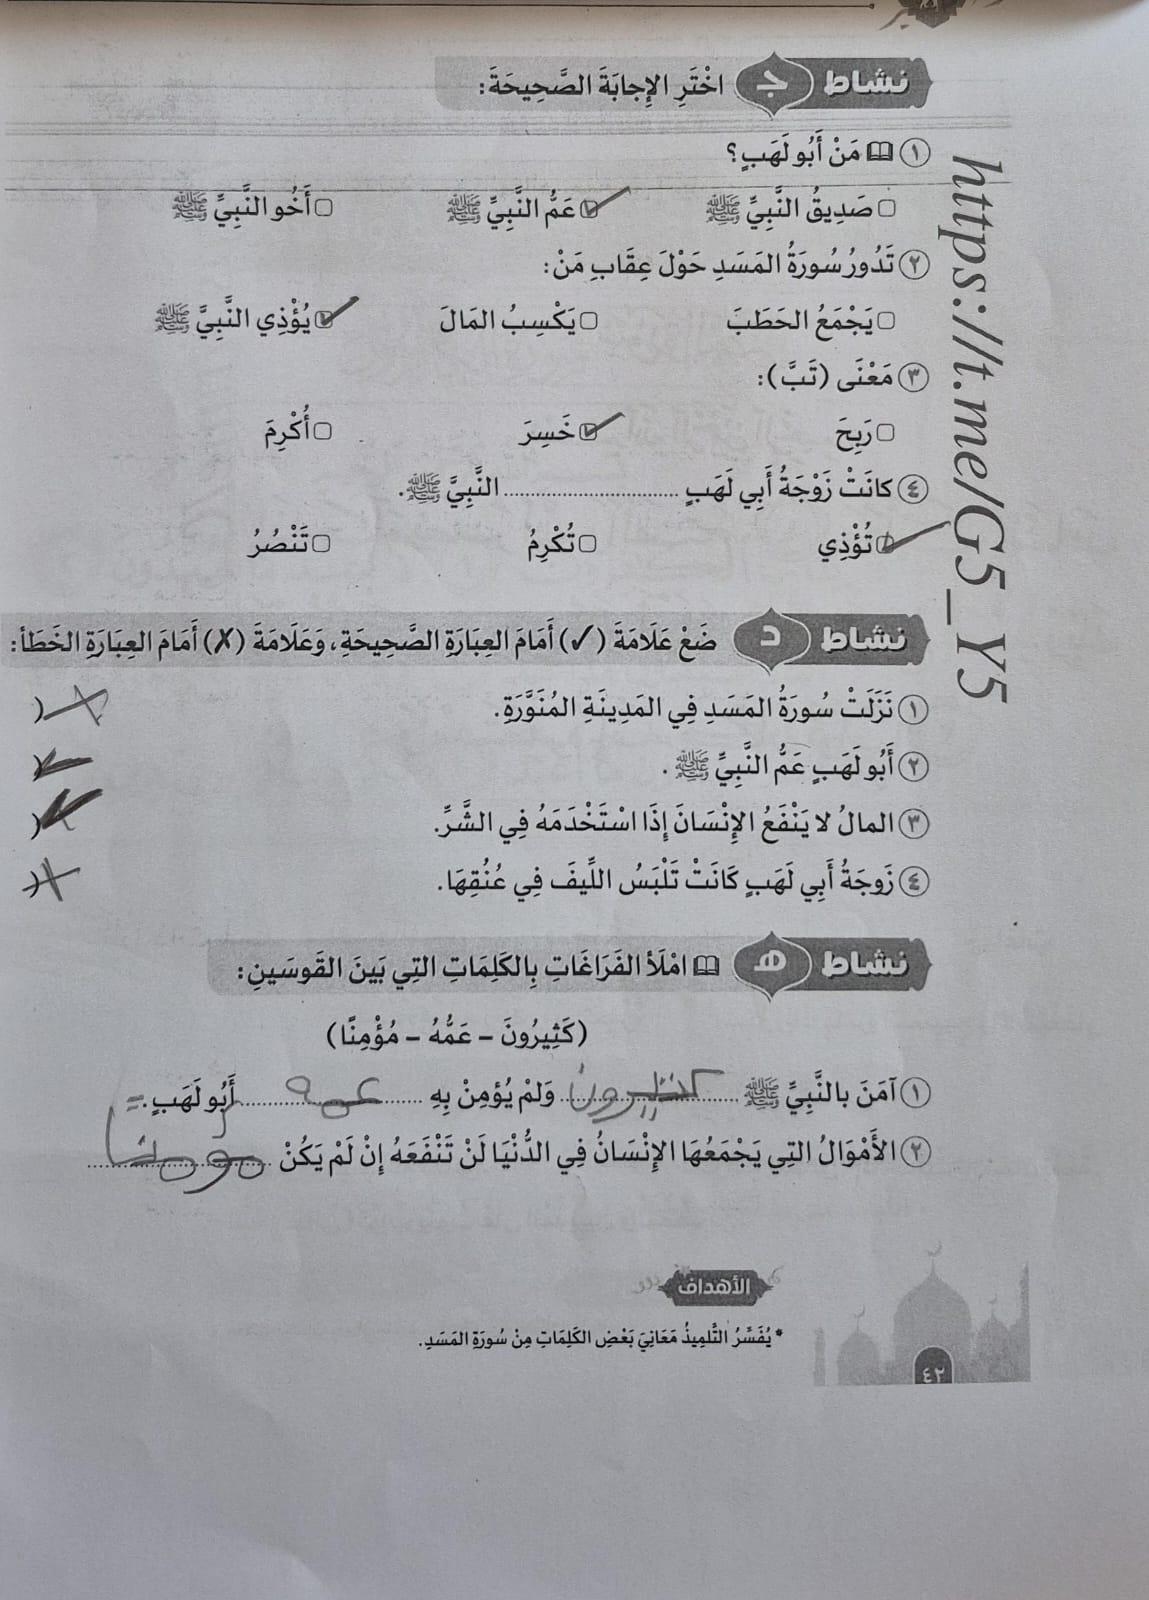 نشاط ج اخْتَرِ الإِجابَةَ الصَّحِيحَةَ:
١ مَنْ أَبُو لَهَبٍ؟
صَدِيقُ النَّبِيِّ ﷺ عَمُّ النَّبِيِّ ﷺ أَخُو النَّبِيِّ ﷺ
٢ تَدُورُ سُورَةُ المَسَدِ حَوْلَ عِقَابِ مَنْ:
يَجْمَعُ الحَطَبَ يَكْسِبُ المَالَ يُؤْذِي النَّبِيَّ ﷺ
٣ مَعْنَى (تَبَّ):
رَبِحَ خَسِرَ أُكْرِمَ
٤ كانَتْ زَوْجَةُ أَبِي لَهَبٍ ........................ النَّبِيَّ ﷺ.
تُؤْذِي تُكْرِمُ تَنْصُرُ
نشاط د ضَعْ عَلَامَةَ (✓) أَمَامَ العِبَارَةِ الصَّحِيحَةِ، وَعَلَامَةَ (✗) أَمَامَ العِبَارَةِ الخَطَأ:
١ نَزَلَتْ سُورَةُ المَسَدِ فِي المَدِينَةِ المُنَوَّرَةِ. (✗)
٢ أَبُو لَهَبٍ عَمُّ النَّبِيِّ ﷺ . (✓)
٣ المالُ لا يَنْفَعُ الإِنْسَانَ إِذَا اسْتَخْدَمَهُ فِي الشَّرِّ. (✓)
٤ زَوجَةُ أَبِي لَهَبٍ كَانَتْ تَلْبَسُ اللِّيفَ فِي عُنُقِهَا. (✗)
نشاط هـ امْلَأ الفَرَاغَاتِ بِالكَلِمَاتِ التِي بَينَ القَوسَينِ:
(كَثِيرُونَ - عَمُّهُ - مُؤْمِنًا)
١ آمَنَ بالنَّبِيِّ ﷺ كثيرون وَلمْ يُؤمِنْ بِهِ عمه أَبُو لَهَبٍ.
٢ الأَمْوَالُ التِي يَجْمَعُهَا الإِنْسَانُ فِي الدُّنْيَا لَنْ تَنْفَعَهُ إِنْ لَمْ يَكُنْ مومنا
الأهداف
* يُفَسِّرُ التِّلمِيذُ مَعَانِيَ بَعْضِ الكَلِمَاتِ مِنْ سُورَةِ المَسَدِ.
٤٢
https://t.me/G5_Y5